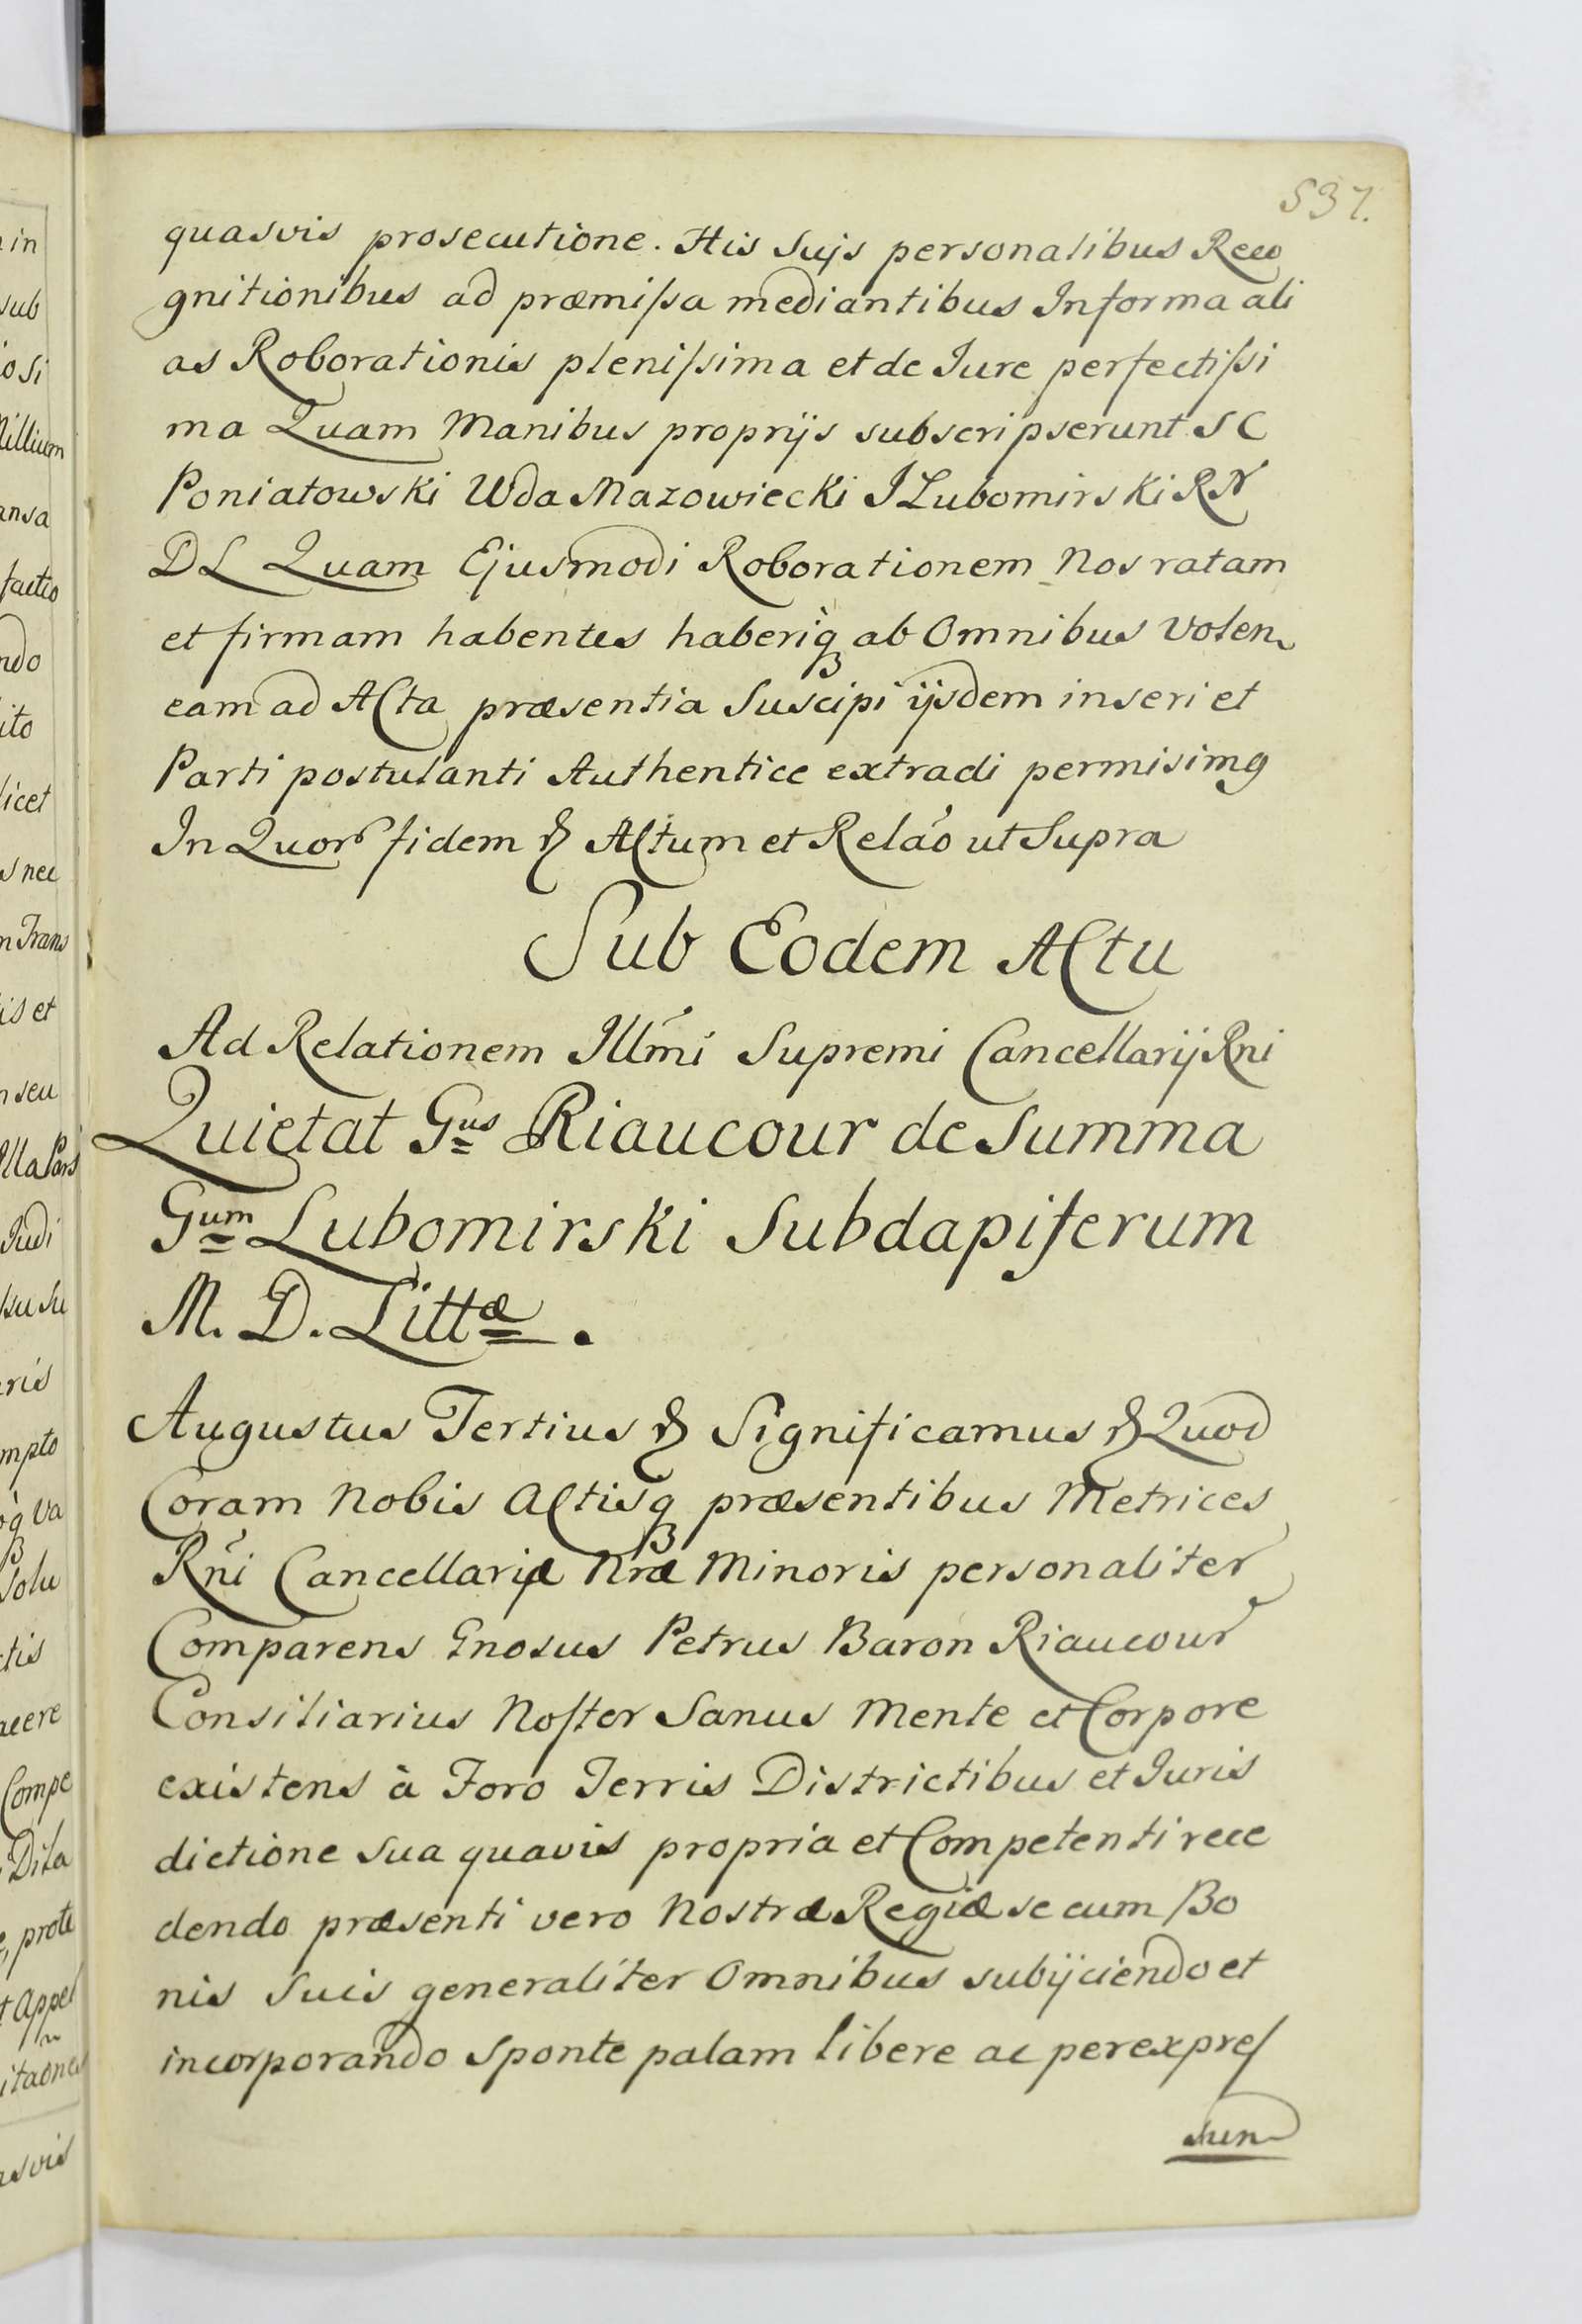 537.
quasvis prosecutione. His Suijs personalibus Reco
gnitionibus ad præmissa mediantibus Informa ali
as Roborationis plenissima et de Jure perfectissi
ma Quam Manibus proprijs subscripserunt S C
Poniatowski Wda Mazowiecki J Lubomirski RN
DL Quam Ejusmodi Roborationem Nos ratam
et firmam habentes haberiq₃ ab Omnibus Volen
eam ad Acta præsentia Suscipi ijsdem inseri et
Parti postulanti Authentice extradi permisimg
In Quor fidem & Actum et Relao ut Supra
Sub Eodem Actu
Ad Relationem Illmi Supremi Cancellarij Rni
Quietat Gus Riaucour de Summa
Gum Lubomirski Subdapiferum
M. D. Littæ.
Augustus Tertius & Significamus & Quod
Coram Nobis Actisq₃ præsentibus Metrices
Rni Cancellariæ Nræ Minoris personaliter
Comparens Gnosus Petrus Baron Riaucour
Consiliarius Noster Sanus Mente et Corpore
existens à Foro Terris Districtibus et Juris
dictione sua quavis propria et Competenti rece
dendo præsenti vero Nostræ Regiæ se cum Bo
nis Suis generaliter Omnibus subijciendo et
incorporando sponte palam libere ac per expres
sum